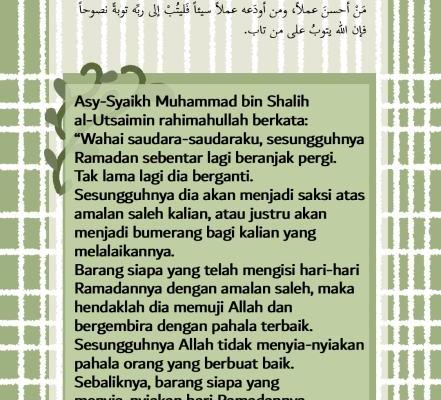 مَنْ أحسنَ عملاً، ومن أودَعه عملاً سيئاً فَليتُبْ إلى ربِّه توبةً نصوحاً
فإن الله يتوبُ على من تاب.
Asy-Syaikh Muhammad bin Shalih
al-Utsaimin rahimahullah berkata:
“Wahai saudara-saudaraku, sesungguhnya
Ramadan sebentar lagi beranjak pergi.
Tak lama lagi dia berganti.
Sesungguhnya dia akan menjadi saksi atas
amalan saleh kalian, atau justru akan
menjadi bumerang bagi kalian yang
melalaikannya.
Barang siapa yang telah mengisi hari-hari
Ramadannya dengan amalan saleh, maka
hendaklah dia memuji Allah dan
bergembira dengan pahala terbaik.
Sesungguhnya Allah tidak menyia-nyiakan
pahala orang yang berbuat baik.
Sebaliknya, barang siapa yang
menyia-nyiakan hari Ramadannya